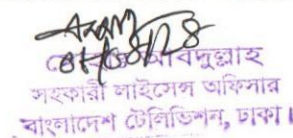 আবদুল্লাহ
সহকারী লাইসেন্স অফিসার
বাংলাদেশ টেলিভিশন, ঢাকা।